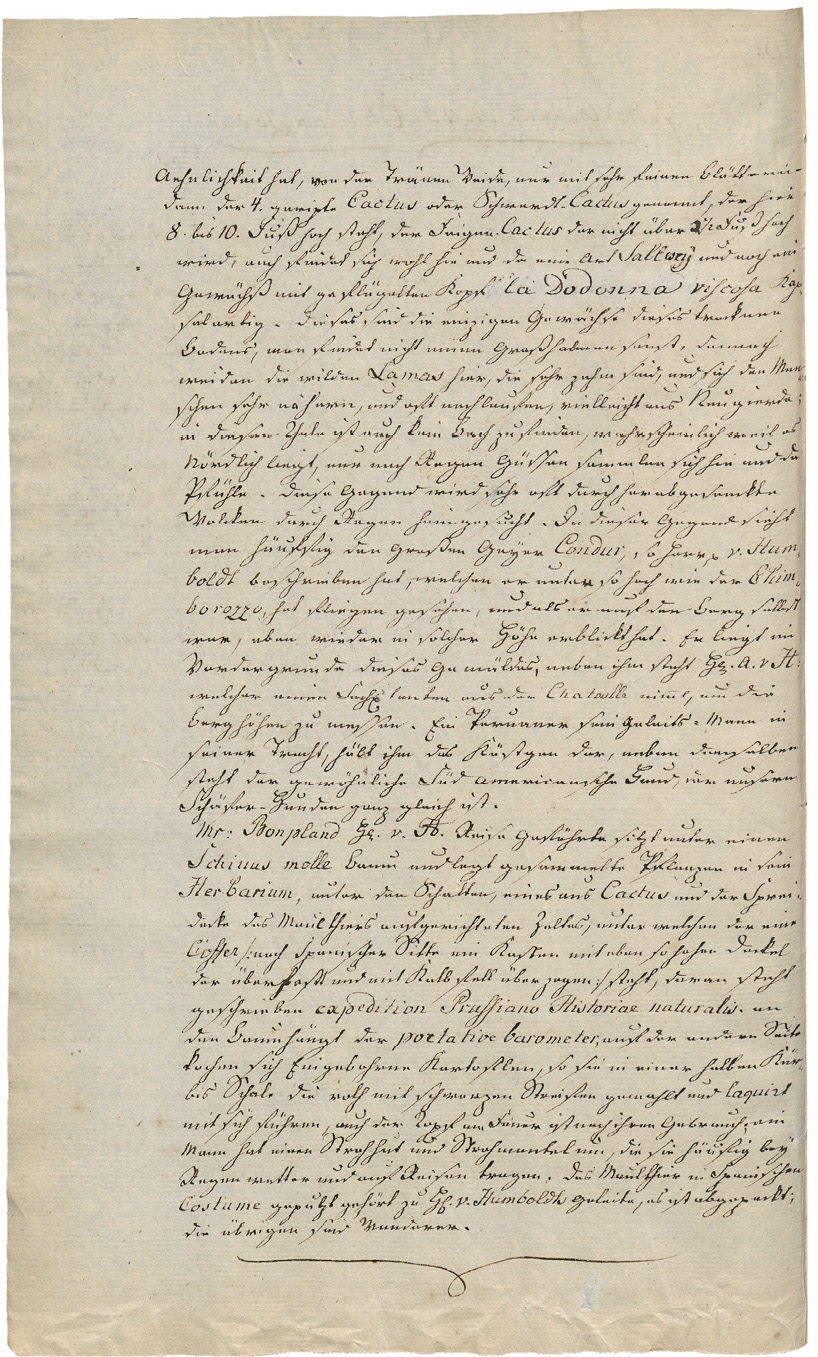 Aehnlichkeit hat, von der Tränen Weide, nur mit sehr feinen Blättern
dann der 4. geripte Cactus oder Schwerdt-Cactus genannt, der hier
8. bis 10. Fuß hoch steht, der Feigen-Cactus der nicht über 2½ Fuß hoch
wird, auch findet sich wohl hie und da eine Art Saltweÿ und noch ein
Gewächß mit geflügelten Kopf la Dodonna viscosa Kap-
selartig. Dieses sind die einzigen Gewächse dieses trocknen
Bodens, man findet nicht einen Graßhalmen sonst, dennoch
weiden die wilden Lamas hier, die sehr zahm sind, und sich den Men-
schen sehr nähern, und oft nachlaufen, vielleicht aus Neugierde;
in diesem Thale ist auch kein Bach zu finden, wahrscheinlich weil es
Nördlich liegt, nur nach Regen Güssen sammlen sich hie und da
Pfühle. Diese Gegend wird sehr oft durch herabgesenckte
Wolcken durch Regen heimgesucht. In dieser Gegend sieht
man häuffig den großen Geyer Condur, so Herr v. Hum-
boldt beschrieben hat, welchen er unten so hoch wie der Chim-
borozzo, hat fliegen gesehen, und als er auf den Berg selbst
war, eben wieder in solcher Höhe erblickt hat. Er liegt im
Vordergrunde dieses Gemäldes, neben ihm steht H. A. v H:
welcher einen Sextanten aus der Chatoulle nimt, um die
Berghöhen zu messen. Ein Peruaner sein Geleits-Mann in
seiner Tracht, hält ihm das Kästgen dar, neben demselben
steht der gewöhnliche Süd americanische Hund, der unsern
Schäfer-Hunden ganz gleich ist.
Mr: Bonpland H. v. H. Reise Gefährte sitzt unter einen
Schinus molle Baum und legt gesammelte Pflanzen in sein
Herbarium, unter den Schatten, eines aus Cactus und der Sprei-
decke des Maulthiers aufgerichteten Zeltes, unter welchen der eine
Coffer /: nach Spanischer Sitte ein Kasten mit eben so hohen Deckel
der überfaßt und mit Kalbfell überzogen :/ steht, daran steht
geschrieben expedition Prussiano Historiae naturalis. an
den Baum hängt der portative barometer, auf der andern Seite
kochen sich Eingebohrne Kartoflen, so sie in einer halben Kür-
bis Schale die roth mit schwarzen Streifen gemahlt und laquirt
mit sich führen, auch der Topf am Feuer ist nach ihren Gebrauch; ein
Mann hat einen Strohhut und Strohmantel um, die sie häufig bey
Regenwetter und auf Reisen tragen. Das Maulthier in Spanischen
Costume geputzt gehört zu H. v. Humboldts Geleite, es ist abgepackt;
die übrigen sind Wanderer.